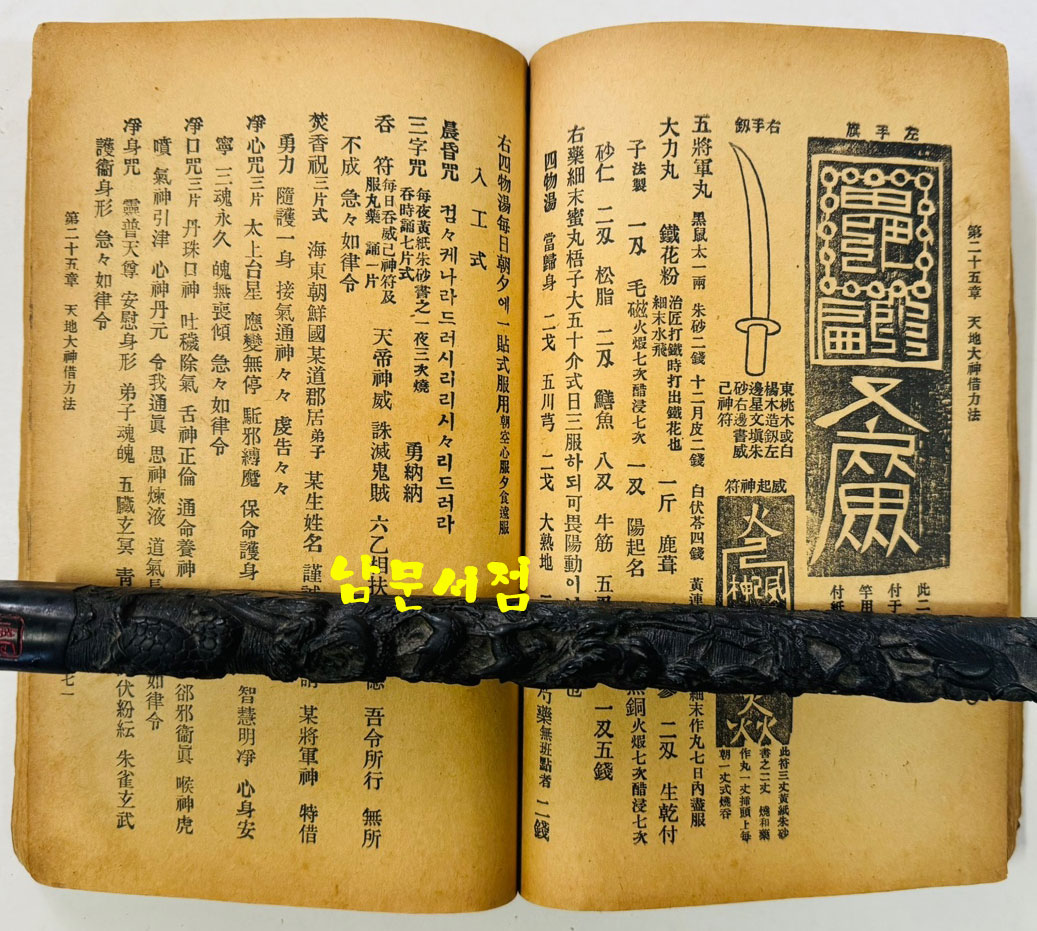 第二十五章 天地大神借力法
左手旗
此二
付于
竿用
付紙
右手釰
東桃木或白
楊木造釰左
邊星文塡朱
砂右邊書威
己神符
威起神符
此符三丈黃紙朱砂
書之二丈 燒和藥
作丸一丈揷頭上每
朝一丈式燒呑
五將軍丸 黑鼠太一兩 朱砂二錢 十二月皮二錢 白伏苓四錢 黃連 細末作丸七日內盡服
大力丸 鐵花粉 治匠打鐵時打出鐵花也 細末水飛 一斤 鹿茸 蔘 二刄 生乾付
子法製 一刄 毛磁火煆七次醋浸七次 一刄 陽起名 銅火煆七次醋浸七次
砂仁 二刄 松脂 二刄 鱔魚 八刄 牛筋 五刄 一刄五錢
右藥細末蜜丸梧子大五十介式日三服하되可畏陽動이 也
四物湯 當歸身 二戈 五川芎 二戈 大熟地 芍藥無班點者 二錢
右四物湯每日朝夕에一貼式服用朝空心服夕食遠服
入工式
晨昏咒 컴々케나라드러시리리시々리드러라
三字咒 每夜黃紙朱砂書之一夜三次燒呑時誦七片式 勇納納
呑符 每日呑威己神符及服丸藥 誦一片 天帝神威 誅滅鬼賊 六乙相扶 吾令所行 無所
不成 急々如律令
焚香祝三片式 海東朝鮮國某道郡居弟子 某生姓名 謹 某將軍神 特借
勇力 隨護一身 接氣通神々々 虔告々々
淨心咒三片 太上台星 應變無停 駈邪縛魔 保命護身 智慧明淨 心身安
寧 三魂永久 魄無喪傾 急々如律令
淨口咒三片 丹珠口神 吐穢除氣 舌神正倫 通命養神 郤邪衞眞 喉神虎
噴 氣神引津 心神丹元 令我通眞 思神煉液 道氣長 如律令
淨身咒 靈普天尊 安慰身形 弟子魂魄 五臟玄冥 靑 伏紛紜 朱雀玄武
護衞身形 急々如律令
第二十五章 天地大神借力法 七一
남문서점